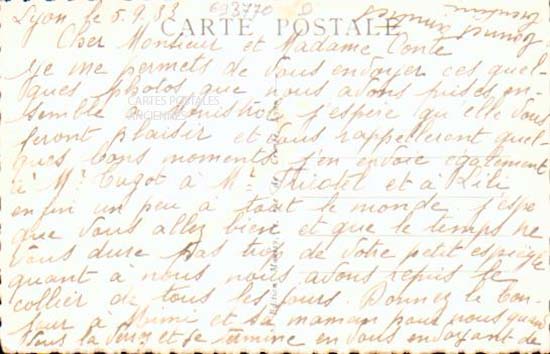 Lyon le 5.9.53
693770
CARTE POSTALE
Cher Monsieur et Madame
Je me permets de vous envoyer ces quel-
ques photos que nous avons prises en-
semble j'espère qu'elle vous
CARTES POSTALES
ANCIENNES
feront plaisir et vous rappelleront quel-
ques bons moments j'en envoie également
à Mr à Mr et à Lili
enfin un peu à tout le monde j'espe
que vous allez bien et que le temps ne
vous dure pas trop de votre petit espiègle
quant à nous nous avons repris le
collier de tous les jours. Donnez le bon-
jour à Mimi et sa maman pour nous quand
vous la verrez et je termine en vous envoyant de